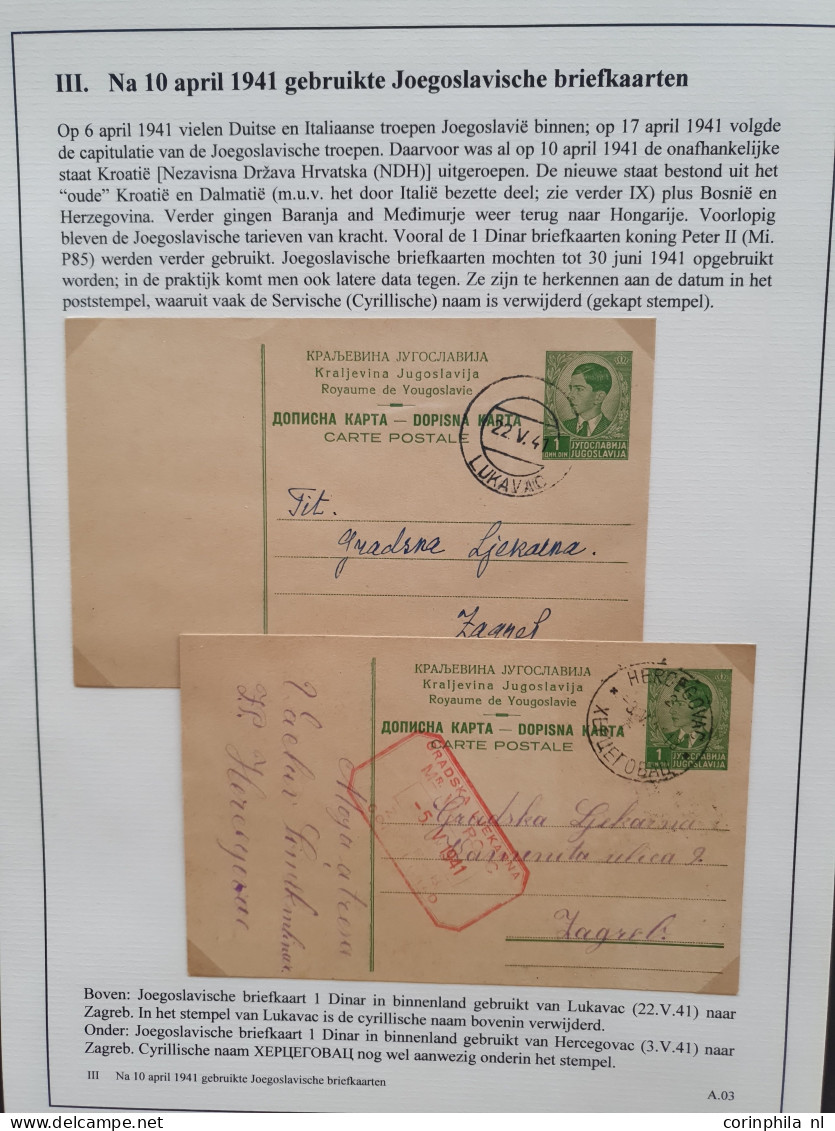 III. Na 10 april 1941 gebruikte Joegoslavische briefkaarten
Op 6 april 1941 vielen Duitse en Italiaanse troepen Joegoslavië binnen; op 17 april 1941 volgde
de capitulatie van de Joegoslavische troepen. Daarvoor was al op 10 april 1941 de onafhankelijke
staat Kroatië [Nezavisna Država Hrvatska (NDH)] uitgeroepen. De nieuwe staat bestond uit het
“oude” Kroatië en Dalmatië (m.u.v. het door Italië bezette deel; zie verder IX) plus Bosnië en
Herzegovina. Verder gingen Baranja and Međimurje weer terug naar Hongarije. Voorlopig
bleven de Joegoslavische tarieven van kracht. Vooral de 1 Dinar briefkaarten koning Peter II (Mi.
P85) werden verder gebruikt. Joegoslavische briefkaarten mochten tot 30 juni 1941 opgebruikt
worden; in de praktijk komt men ook latere data tegen. Ze zijn te herkennen aan de datum in het
poststempel, waaruit vaak de Servische (Cyrillische) naam is verwijderd (gekapt stempel).
КРАЉЕВИНА ЈУГОСЛАВИЈА
Kraljevina Jugoslavija
Royaume de Yougoslavie
ДОПИСНА КАРТА — DOPISNA KARTA
CARTE POSTALE
1 ЈУГОСЛАВИЈА
ДИН.DIN JUGOSLAVIJA
22.V.41
LUKAVAC
Tit.
Gradska Ljekarna.
Zagreb
КРАЉЕВИНА ЈУГОСЛАВИЈА
Kraljevina Jugoslavija
Royaume de Yougoslavie
ДОПИСНА КАРТА — DOPISNA KARTA
CARTE POSTALE
1 ЈУГОСЛАВИЈА
JUGOSLAVIJA
HERCEGOVAC
ХЕРЦЕГОВАЦ
GRADSKA LJEKARNA
Mr.
-5.V.1941
Gradska Ljekarna
Kamenita ulica 9.
Zagreb.
Vaclav
Hercegovac
Boven: Joegoslavische briefkaart 1 Dinar in binnenland gebruikt van Lukavac (22.V.41) naar
Zagreb. In het stempel van Lukavac is de cyrillische naam bovenin verwijderd.
Onder: Joegoslavische briefkaart 1 Dinar in binnenland gebruikt van Hercegovac (3.V.41) naar
Zagreb. Cyrillische naam ХЕРЦЕГОВАЦ nog wel aanwezig onderin het stempel.
III Na 10 april 1941 gebruikte Joegoslavische briefkaarten
A.03
Copyright corinphila.nl